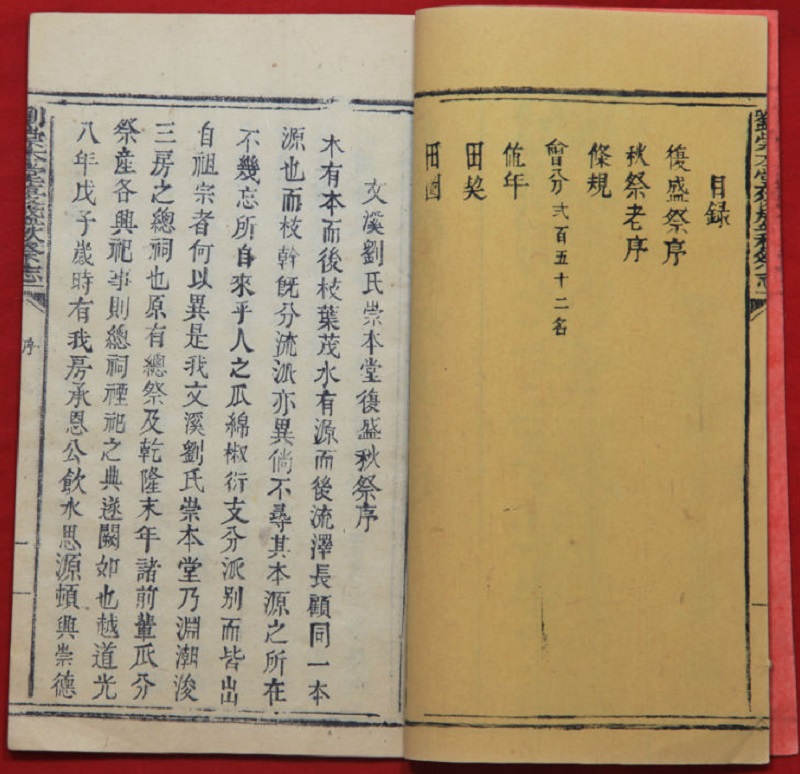 劉崇本堂復盛秋祭志
目録
復盛祭序
秋祭老序
條規
會分 弍百五十二名
值年
田契
田圖
文溪劉氏崇本堂復盛秋祭序
木有本而後枝葉茂水有源而後流澤長顧同一本
源也而枝幹旣分流派亦異倘不尋其本源之所在
不幾忘所自來乎人之瓜綿椒衍支分派别而皆出
自祖宗者何以異是我文溪劉氏崇本堂乃淵潮浚
三房之總祠也原有總祭及乾隆末年諸前輩瓜分
祭產各興祀事則總祠禋祀之典遂闕如也越道光
八年戊子歲時有我房承恩公飲水思源頓興崇德
劉崇本堂復盛秋祭志
序
一